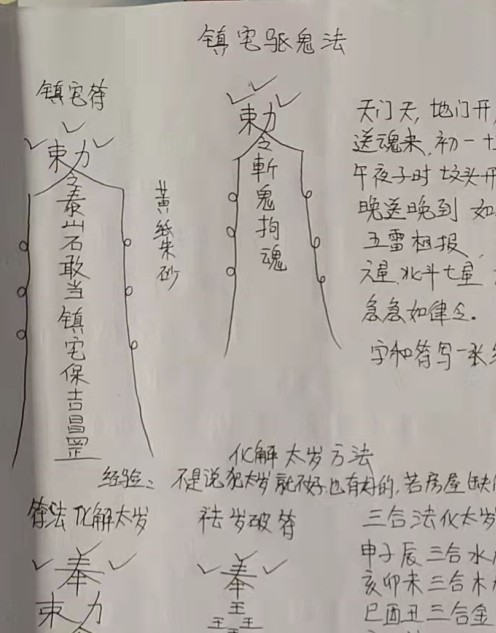 镇宅驱鬼法
镇宅符
敕令泰山石敢当镇宅保吉昌罡
黄纸朱砂
敕令斬鬼拘魂
天门天,地门开,
送魂来,初一十
午夜子时 坟头开
晚送晚到 如
五雷相报,
六星,北斗七星
急急如律令.
字和符写一张
化解太岁方法
经验: 不是说犯太岁就不好也有好的,若房屋缺
符法化解太岁
祛岁破符
三合法化太岁
奉
敕
奉
王
王王
申子辰三合水
亥卯未三合木
巳酉丑三合金